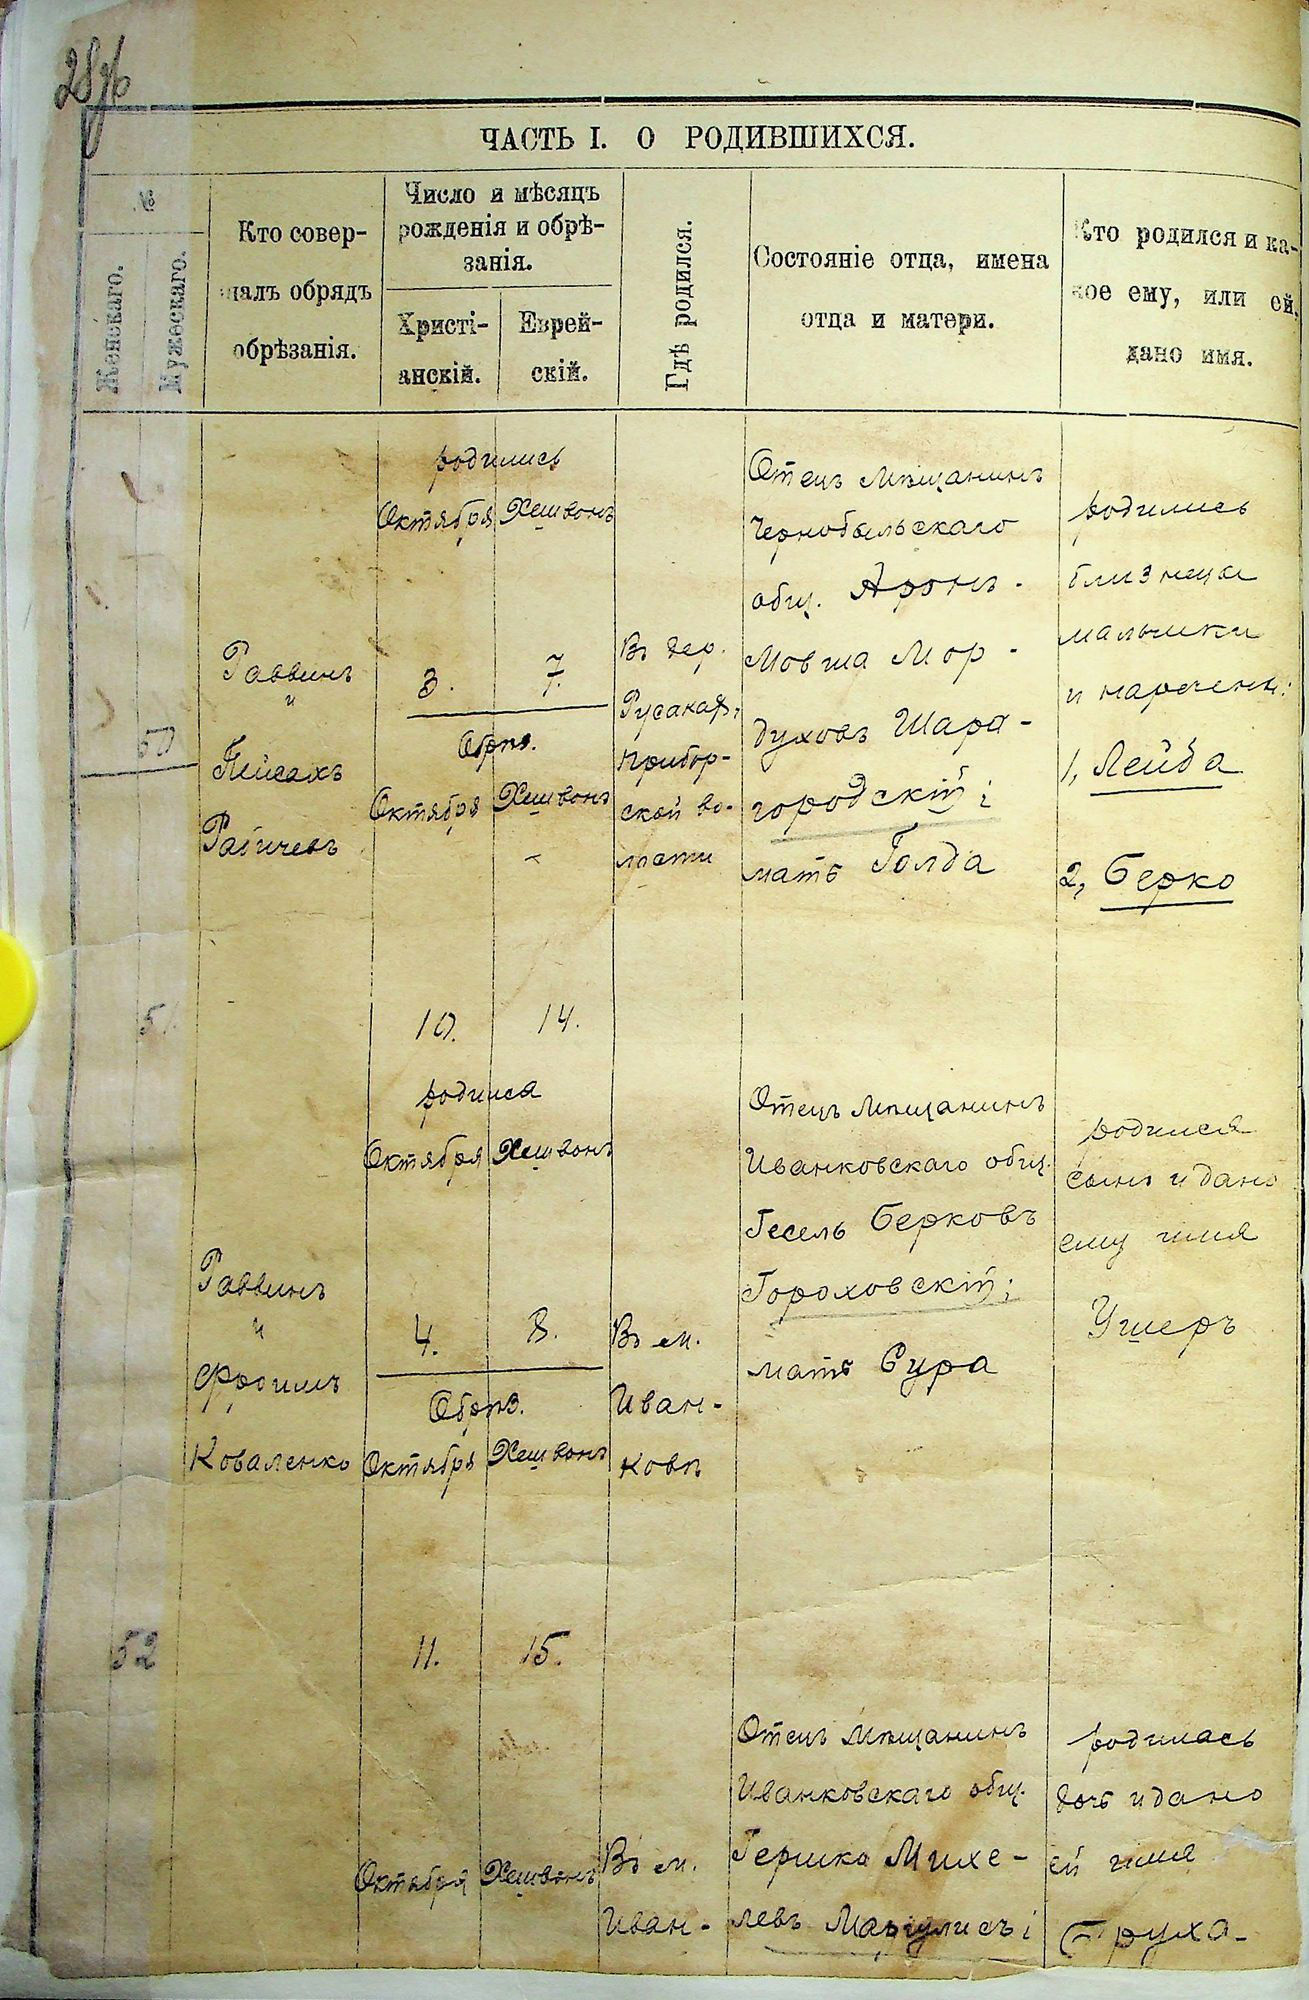 ЧАСТЬ I. О РОДИВШИХСЯ.
№
Женскаго.
Мужескаго.
Кто совер-
шалъ обрядъ
обрѣзанія.
Число и мѣсяцъ
рожденія и обрѣ-
занія.
Христі-
анскій.
Еврей-
скій.
Гдѣ родился.
Состояніе отца, имена
отца и матери.
Кто родился и ка-
кое ему, или ей,
дано имя.
50
Раввинъ
и
Пейсахъ
Рабичевъ
родились
Октября Хешвонъ
3. 7.
Обрѣз.
Октября Хешвонъ
10. 14.
Въ дер.
Русаках,
Прибор-
ской во-
лости
Отецъ мѣщанинъ
Чернобыльскаго
общ. Аронъ-
Мовша Мор-
духовъ Шара-
городскій;
мать Голда
родились
близнецы
мальчики
и наречены:
1, Лейба
2, Берко
51.
Раввинъ
и
Фроимъ
Коваленко
родился
Октября Хешвонъ
4. 8.
Обрѣз.
Октября Хешвонъ
11. 15.
Въ м.
Иван-
ковѣ
Отецъ мѣщанинъ
Иванковскаго общ.
Гесель Берковъ
Гороховскій;
мать Сура
родился
сынъ и дано
ему имя
Ушеръ
52
Октября Хешвонъ
Въ м.
Иван-
Отецъ мѣщанинъ
Иванковскаго общ.
Гершко Михе-
левъ Маргулисъ;
родилась
дочь и дано
ей имя
Бруха-